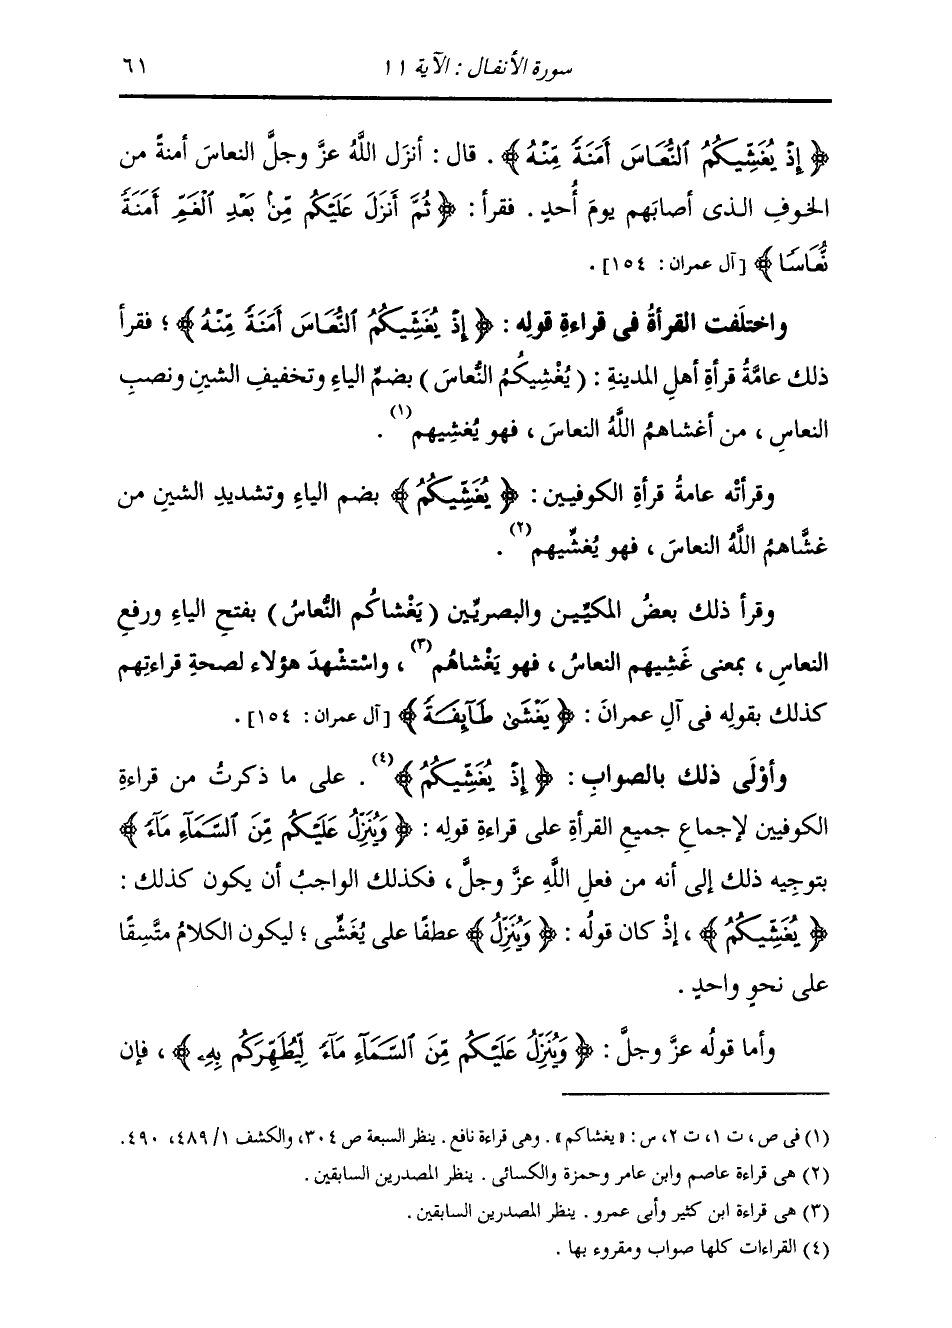 سورة الأنفال : الآية ١١ ٦١
﴿ إِذْ يُغَشِّيكُمُ ٱلنُّعَاسَ أَمَنَةً مِّنْهُ ﴾ . قال : أنزَل اللَّهُ عزَّ وجلَّ النعاسَ أمنةً من
الخوفِ الذى أصابَهم يومَ أُحدٍ . فقرأ : ﴿ ثُمَّ أَنزَلَ عَلَيْكُم مِّنۢ بَعْدِ ٱلْغَمِّ أَمَنَةً
نُّعَاسًا ﴾ [آل عمران: ١٥٤] .
واختلَفت القرأةُ فى قراءةِ قولِه : ﴿ إِذْ يُغَشِّيكُمُ ٱلنُّعَاسَ أَمَنَةً مِّنْهُ ﴾ ؛ فقرأ
ذلك عامَّةُ قرأةِ أهلِ المدينةِ : ( يُغْشِيكُمُ النُّعاسَ ) بضمِّ الياءِ وتخفيفِ الشينِ ونصبِ
النعاسِ ، من أغشاهمُ اللَّهُ النعاسَ ، فهو يُغشِيهم(١) .
وقرأتْه عامةُ قرأةِ الكوفيين : ﴿ يُغَشِّيكُمُ ﴾ بضم الياءِ وتشديدِ الشينِ من
غشَّاهمُ اللَّهُ النعاسَ ، فهو يُغشِّيهم(٢) .
وقرأ ذلك بعضُ المكيِّين والبصريِّين ( يَغْشاكُم النُّعاسُ ) بفتحِ الياءِ ورفعِ
النعاسِ ، بمعنى غَشِيهم النعاسُ ، فهو يَغْشاهُم(٣) ، واسْتشْهدَ هؤلاء لصحةِ قراءتِهم
كذلك بقولِه فى آلِ عمرانَ : ﴿ يَغْشَىٰ طَآئِفَةً ﴾ [آل عمران: ١٥٤] .
وأوْلَى ذلك بالصوابِ : ﴿ إِذْ يُغَشِّيكُمُ ﴾(٤) . على ما ذكرتُ من قراءةِ
الكوفيين لإجماعِ جميعِ القرأةِ على قراءةِ قولِه : ﴿ وَيُنَزِّلُ عَلَيْكُم مِّنَ ٱلسَّمَآءِ مَآءً ﴾
بتوجيه ذلك إلى أنه من فعلِ اللَّهِ عزَّ وجلَّ ، فكذلك الواجبُ أن يكون كذلك :
﴿ يُغَشِّيكُمُ ﴾ ، إذْ كان قولُه : ﴿ وَيُنَزِّلُ ﴾ عطفًا على يُغَشِّى ؛ ليكون الكلامُ متَّسِقًا
على نحوٍ واحدٍ .
وأما قولُه عزَّ وجلَّ : ﴿ وَيُنَزِّلُ عَلَيْكُم مِّنَ ٱلسَّمَآءِ مَآءً لِّيُطَهِّرَكُم بِهِۦ ﴾ ، فإن
(١) فى ص ، ت ١، ت ٢، س : « يغشاكم » . وهى قراءة نافع . ينظر السبعة ص ٣٠٤، والكشف ١/ ٤٨٩، ٤٩٠.
(٢) هى قراءة عاصم وابن عامر وحمزة والكسائى . ينظر المصدرين السابقين .
(٣) هى قراءة ابن كثير وأبى عمرو . ينظر المصدرين السابقين .
(٤) القراءات كلها صواب ومقروء بها .